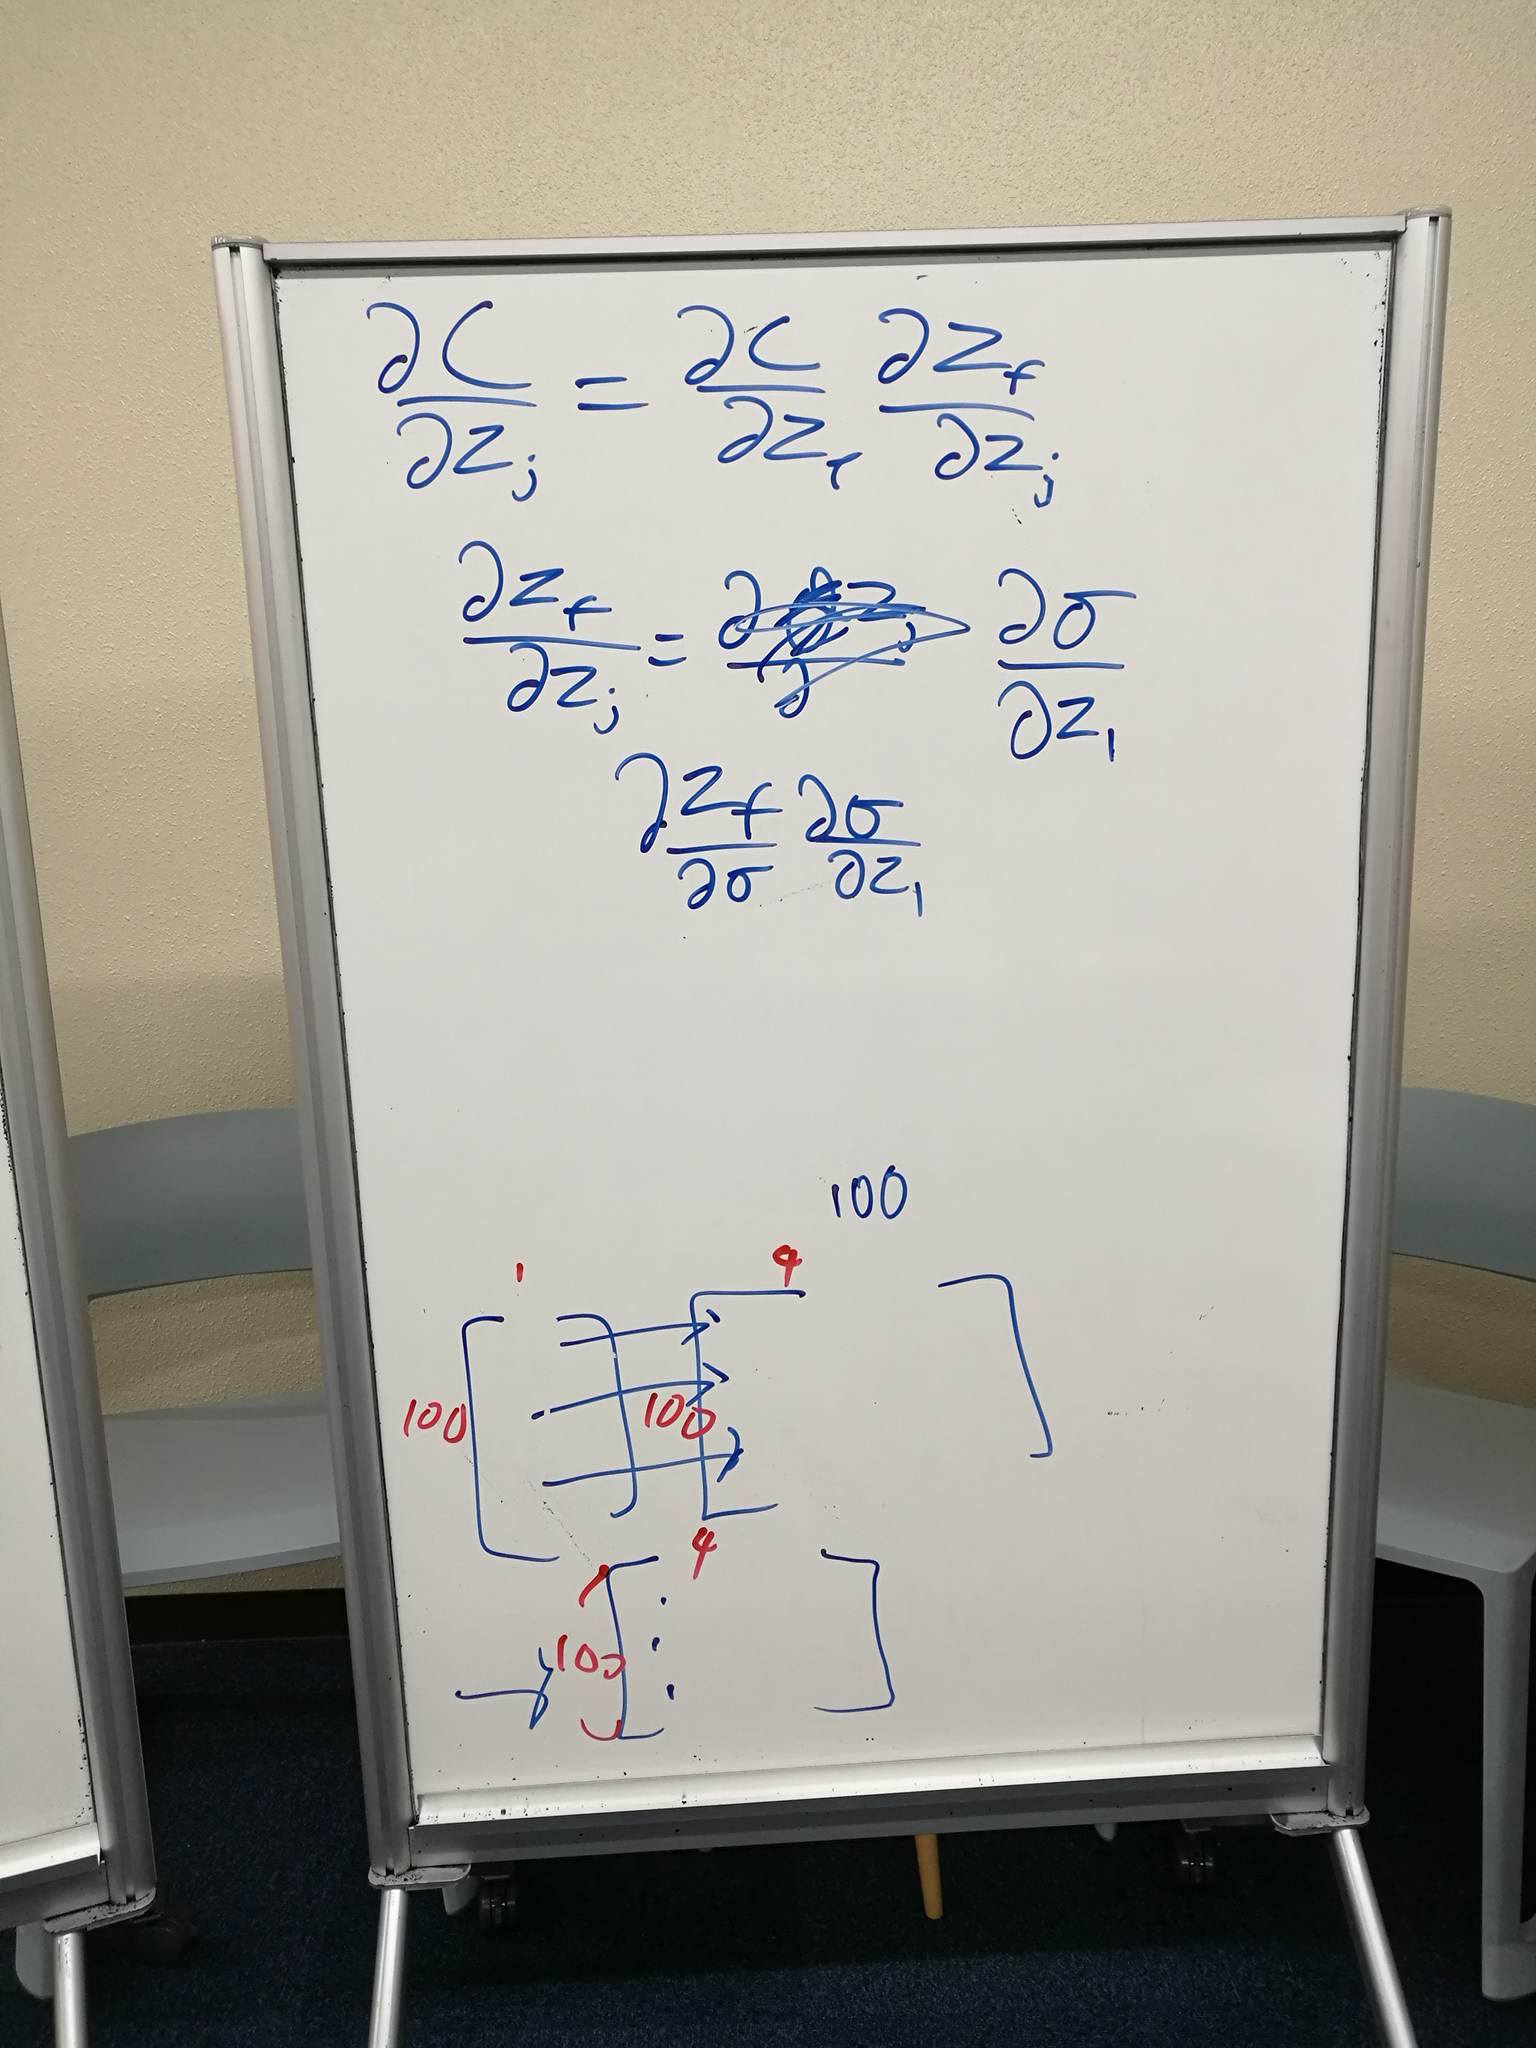 ∂C/∂z_j = ∂C/∂z_f ∂z_f/∂z_j
∂z_f/∂z_j = ∂σ/∂z_1
∂z_f/∂σ ∂σ/∂z_1
100
1 4
100 100
4
100